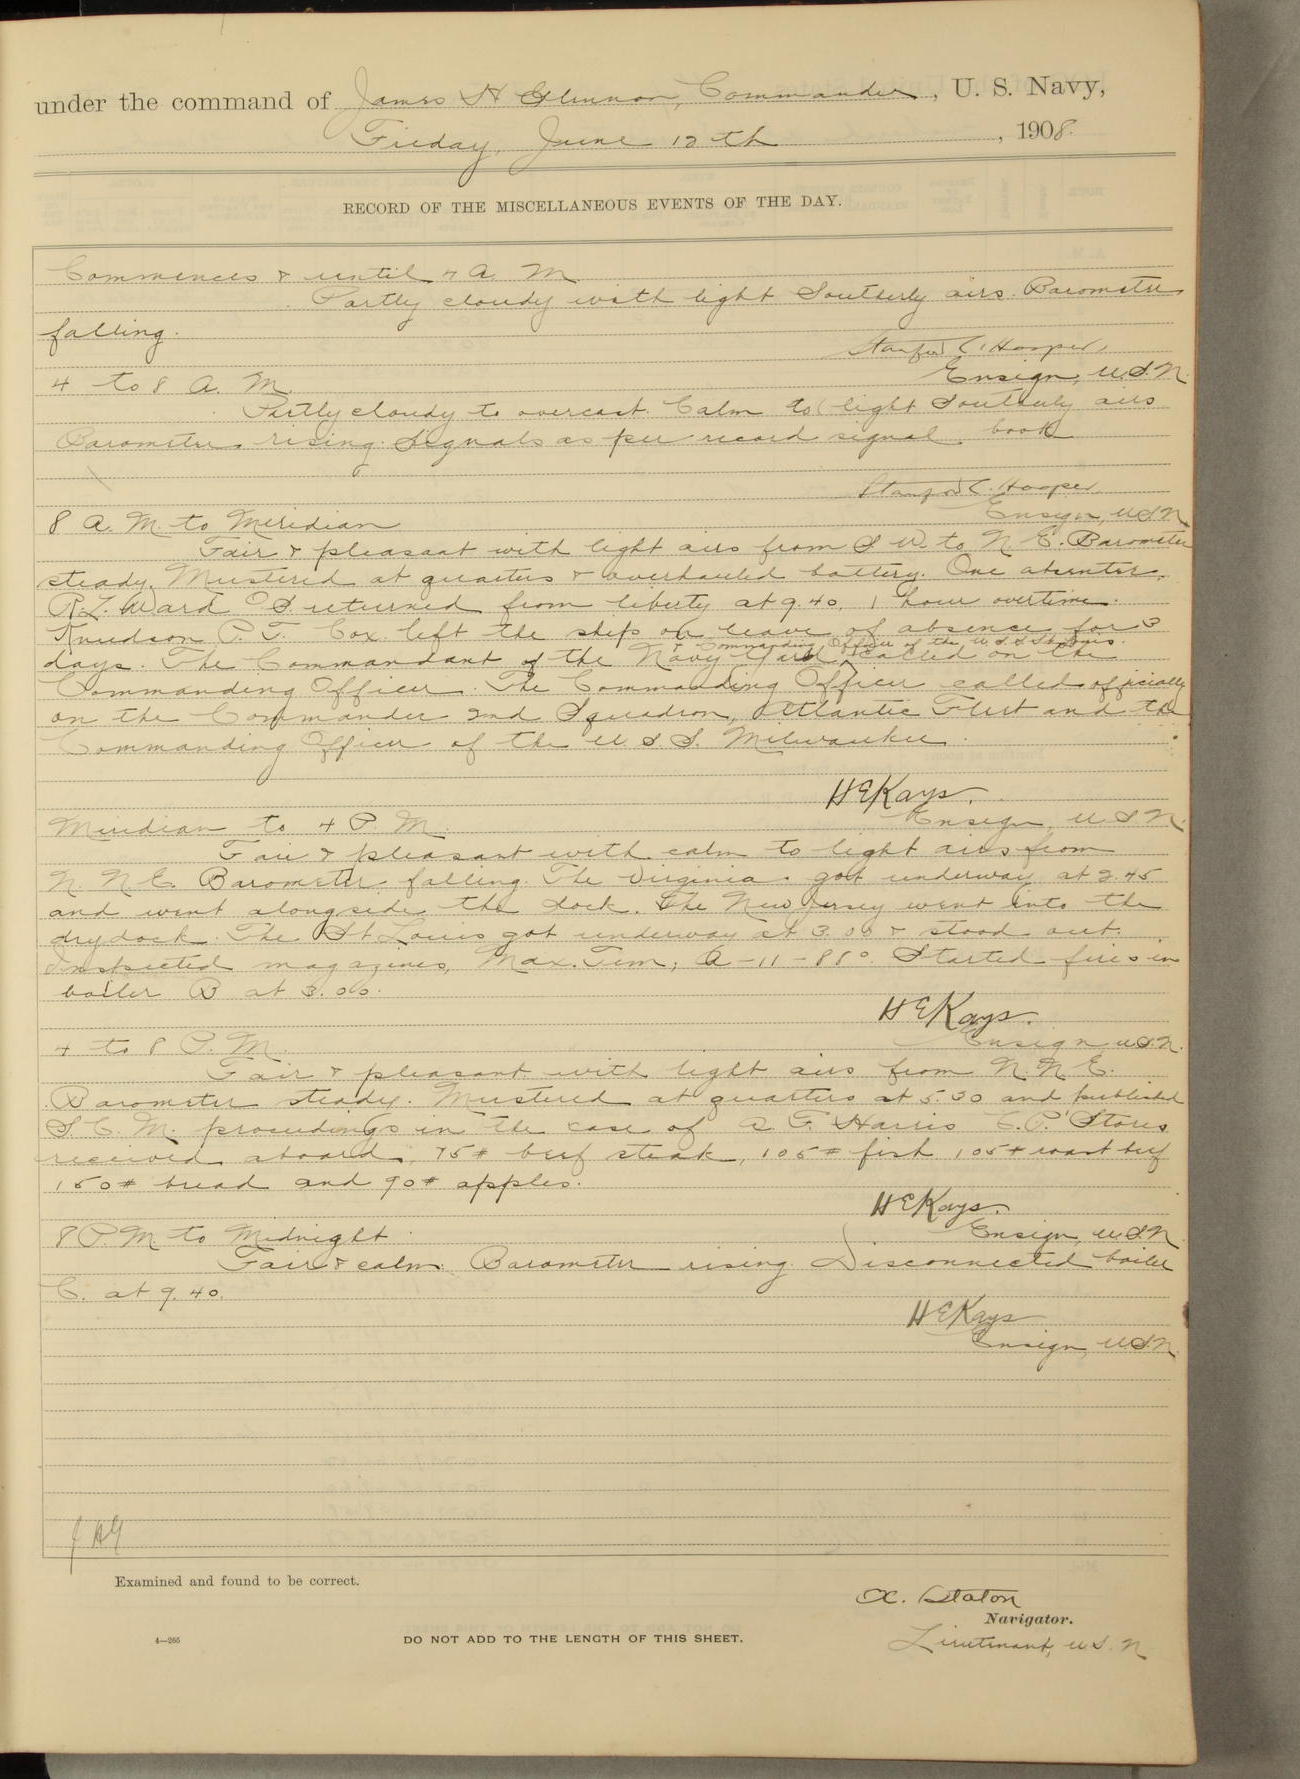 under the command of James H Glennon, Commander, U. S. Navy,
Friday, June 12th, 1908.
RECORD OF THE MISCELLANEOUS EVENTS OF THE DAY.
Commences & until 4 A. M.
Partly cloudy with light Southerly airs. Barometer
falling.
Stanford C. Hooper,
Ensign, U.S.N.
4 to 8 A. M.
Partly cloudy to overcast. Calm to light Southerly airs
Barometer rising. Signals as per record signal book
Stanford C. Hooper,
Ensign, U.S.N
8 A. M. to Meridian
Fair & pleasant with light airs from S W. to N. E. Barometer
steady. Mustered at quarters & overhauled battery. One absentee,
R.L. Ward O S returned from liberty at 9.40, 1 hour overtime.
Knudson P. T. Cox left the ship on leave of absence for 3
& Commanding Officer of the U.S.S St Louis
days. The Commandant of the Navy Yard called on the
Commanding Officer. The Commanding Officer called officially
on the Commander 2nd Squadron, Atlantic Fleet and the
Commanding Officer of the U. S. S. Milwaukee.
H E Kays.
Ensign, U S N.
Meridian to 4 P. M.
Fair & pleasant with calm to light airs from
N. N. E. Barometer falling. The Virginia got underway at 2.45
and went alongside the dock. The New Jersey went into the
drydock. The St Louis got underway at 3.00 & stood out.
Inspected magazines, Max. Tem; A-11-88°. Started fires in
boiler B at 3.00.
H E Kays.
Ensign U.S.N.
4 to 8 P. M.
Fair & pleasant with light airs from N. N. E.
Barometer steady. Mustered at quarters at 5.30 and published
S. C. M. proceedings in the case of A. F. Harris C.P. Stores
received aboard, 75# beef steak, 105# fish 105# roast beef
150# bread and 90# apples.
H E Kays.
Ensign, U.S.N
8 P.M. to Midnight
Fair & calm. Barometer rising. Disconnected boiler
C. at 9.40.
H E Kays
Ensign, U.S.N.
J H G
Examined and found to be correct.
A. Staton
Navigator.
Lieutenant, U S. N
4—266
DO NOT ADD TO THE LENGTH OF THIS SHEET.